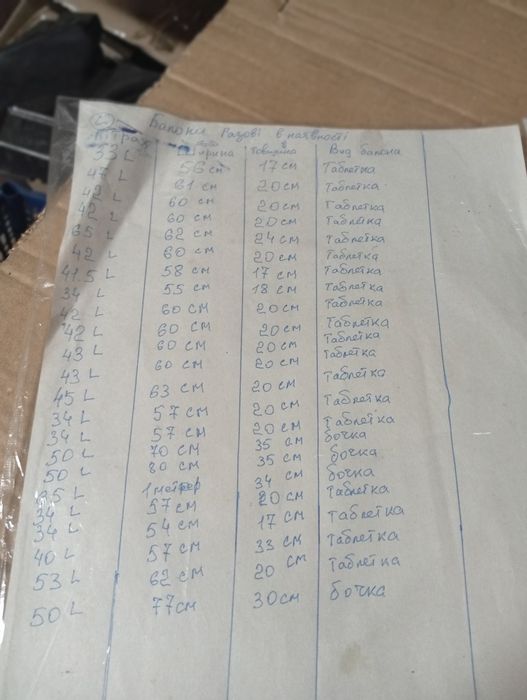 Балони Газові в наявності
Літраж Ширина Товщина Вид балона
53 L 56 см 17 см Таблетка
47 L 61 см 20 см Таблетка
42 L 60 см 20 см Таблетка
42 L 60 см 20 см Таблетка
65 L 62 см 24 см Таблетка
42 L 60 см 20 см Таблетка
41.5 L 58 см 17 см Таблетка
34 L 55 см 18 см Таблетка
42 L 60 см 20 см Таблетка
42 L 60 см 20 см Таблетка
43 L 60 см 20 см Таблетка
43 L 60 см 20 см Таблетка
45 L 63 см 20 см Таблетка
34 L 57 см 20 см Таблетка
34 L 57 см 20 см Таблетка
50 L 70 см 35 см бочка
50 L 80 см 35 см бочка
L 1 метер 34 см бочка
34 L 57 см 20 см Таблетка
34 L 54 см 17 см Таблетка
40 L 57 см 33 см Таблетка
53 L 62 см 20 см Таблетка
50 L 77 см 30 см бочка